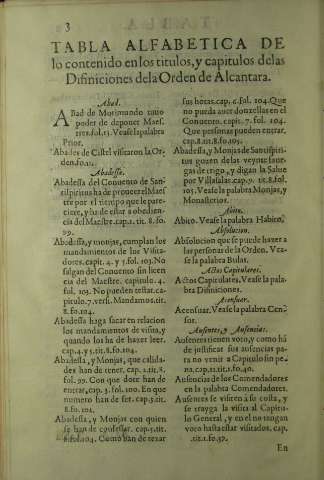 3
TABLA ALFABETICA DE
lo contenido en los titulos, y capitulos delas
Difiniciones dela Orden de Alcantara.
Abad.
ABad de Morimundo tuuo
poder de deponer Maes-
tres. fol. 13. Vease la palabra
Prior.
Abades de Cistel visitaron la Or-
den. fo. 11.
Abadessa.
Abadessa del Conuento de San-
ctispiritus ha de proueer el Maes
tre por el tiempo que le pare-
ciere, y ha de estar a obedien-
cia del Maestre. cap. 1. tit. 8. fo
99.
Abadessa, y monjas, cumplan los
mandamientos de los Visita-
dores. capit. 4. y 5. fol. 103. No
salgan del Conuento sin licen
cia del Maestre. capitulo. 4.
fol. 103. No pueden testar. ca-
pitulo. 7. versi. Mandamos. tit.
8. fo. 104.
Abadessa haga sacar en relacion
los mandamientos de visita, y
quando los ha de hazer leer.
cap. 4. y 5. tit. 8. fo. 104.
Abadessa, y Monjas, que calida-
des han de tener. cap. 2. tit. 8.
fol. 99. Con que dote han de
entrar, cap. 3. fol. 100. En que
numero han de ser. cap. 3. tit.
8. fo. 104.
Abadessa, y Monjas con quien
se han de confessar. cap. 5. tit
8. fol. 104. Como han de rezar
sus horas. cap. 6. fol. 104. Que
no pueda auer donzellas en el
Conuento. capit. 7. fol. 104.
Que personas pueden entrar,
cap. 8. tit. 8. fo. 105.
Abadessa, y Monjas de Sanctispiri-
tus gozen de las veynte fane-
gas de trigo, y digan la Salue
por Villasalas. cap. 9. tit. 8. fol.
105. Vease la palabra Monjas, y
Monasterios.
Abito.
Abito. Vease la palabra Habito.
Absolucion.
Absolucion que se puede hazer a
las personas de la Orden. Vea-
se la palabra Bulas.
Actos Capitulares.
Actos Capitulares. Vease la pala-
bra Difiniciones.
Acensuar.
Acensuar. Vease la palabra Cen-
sos.
Ausentes, y Ausencias.
Ausentes tienen voto, y como há
de justificar sus ausencias pa-
ra no venir a Capitulo sin pe-
na. cap. 11. tit. 1. fo. 40.
Ausencias de los Comendadores
en la palabra Comendadores.
Ausentes se visiten á su costa, y
se trayga la visita al Capitu-
lo General, y en el no tengan
voto hasta estar visitados. cap.
tit. 1. fo. 39.
En